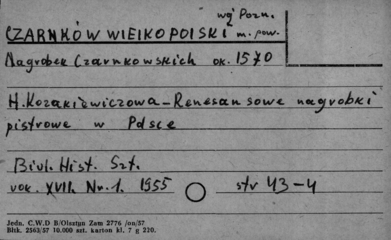 wg Pozn.
CZARNKÓW WIELKOPOLSKI m. pow.
Nagrobek Czarnkowskich ok. 1570
H. Kozakiewiczowa - Renesansowe nagrobki
piętrowe w Polsce
Biul. Hist. Szt.
rok. XVII. Nr. 1. 1955 str 43-4
Jedn. C.W.D B/Olsztyn Zam 2776 /on/57
Błtk. 2563/57 10.000 szt. karton kl. 7 g 220.